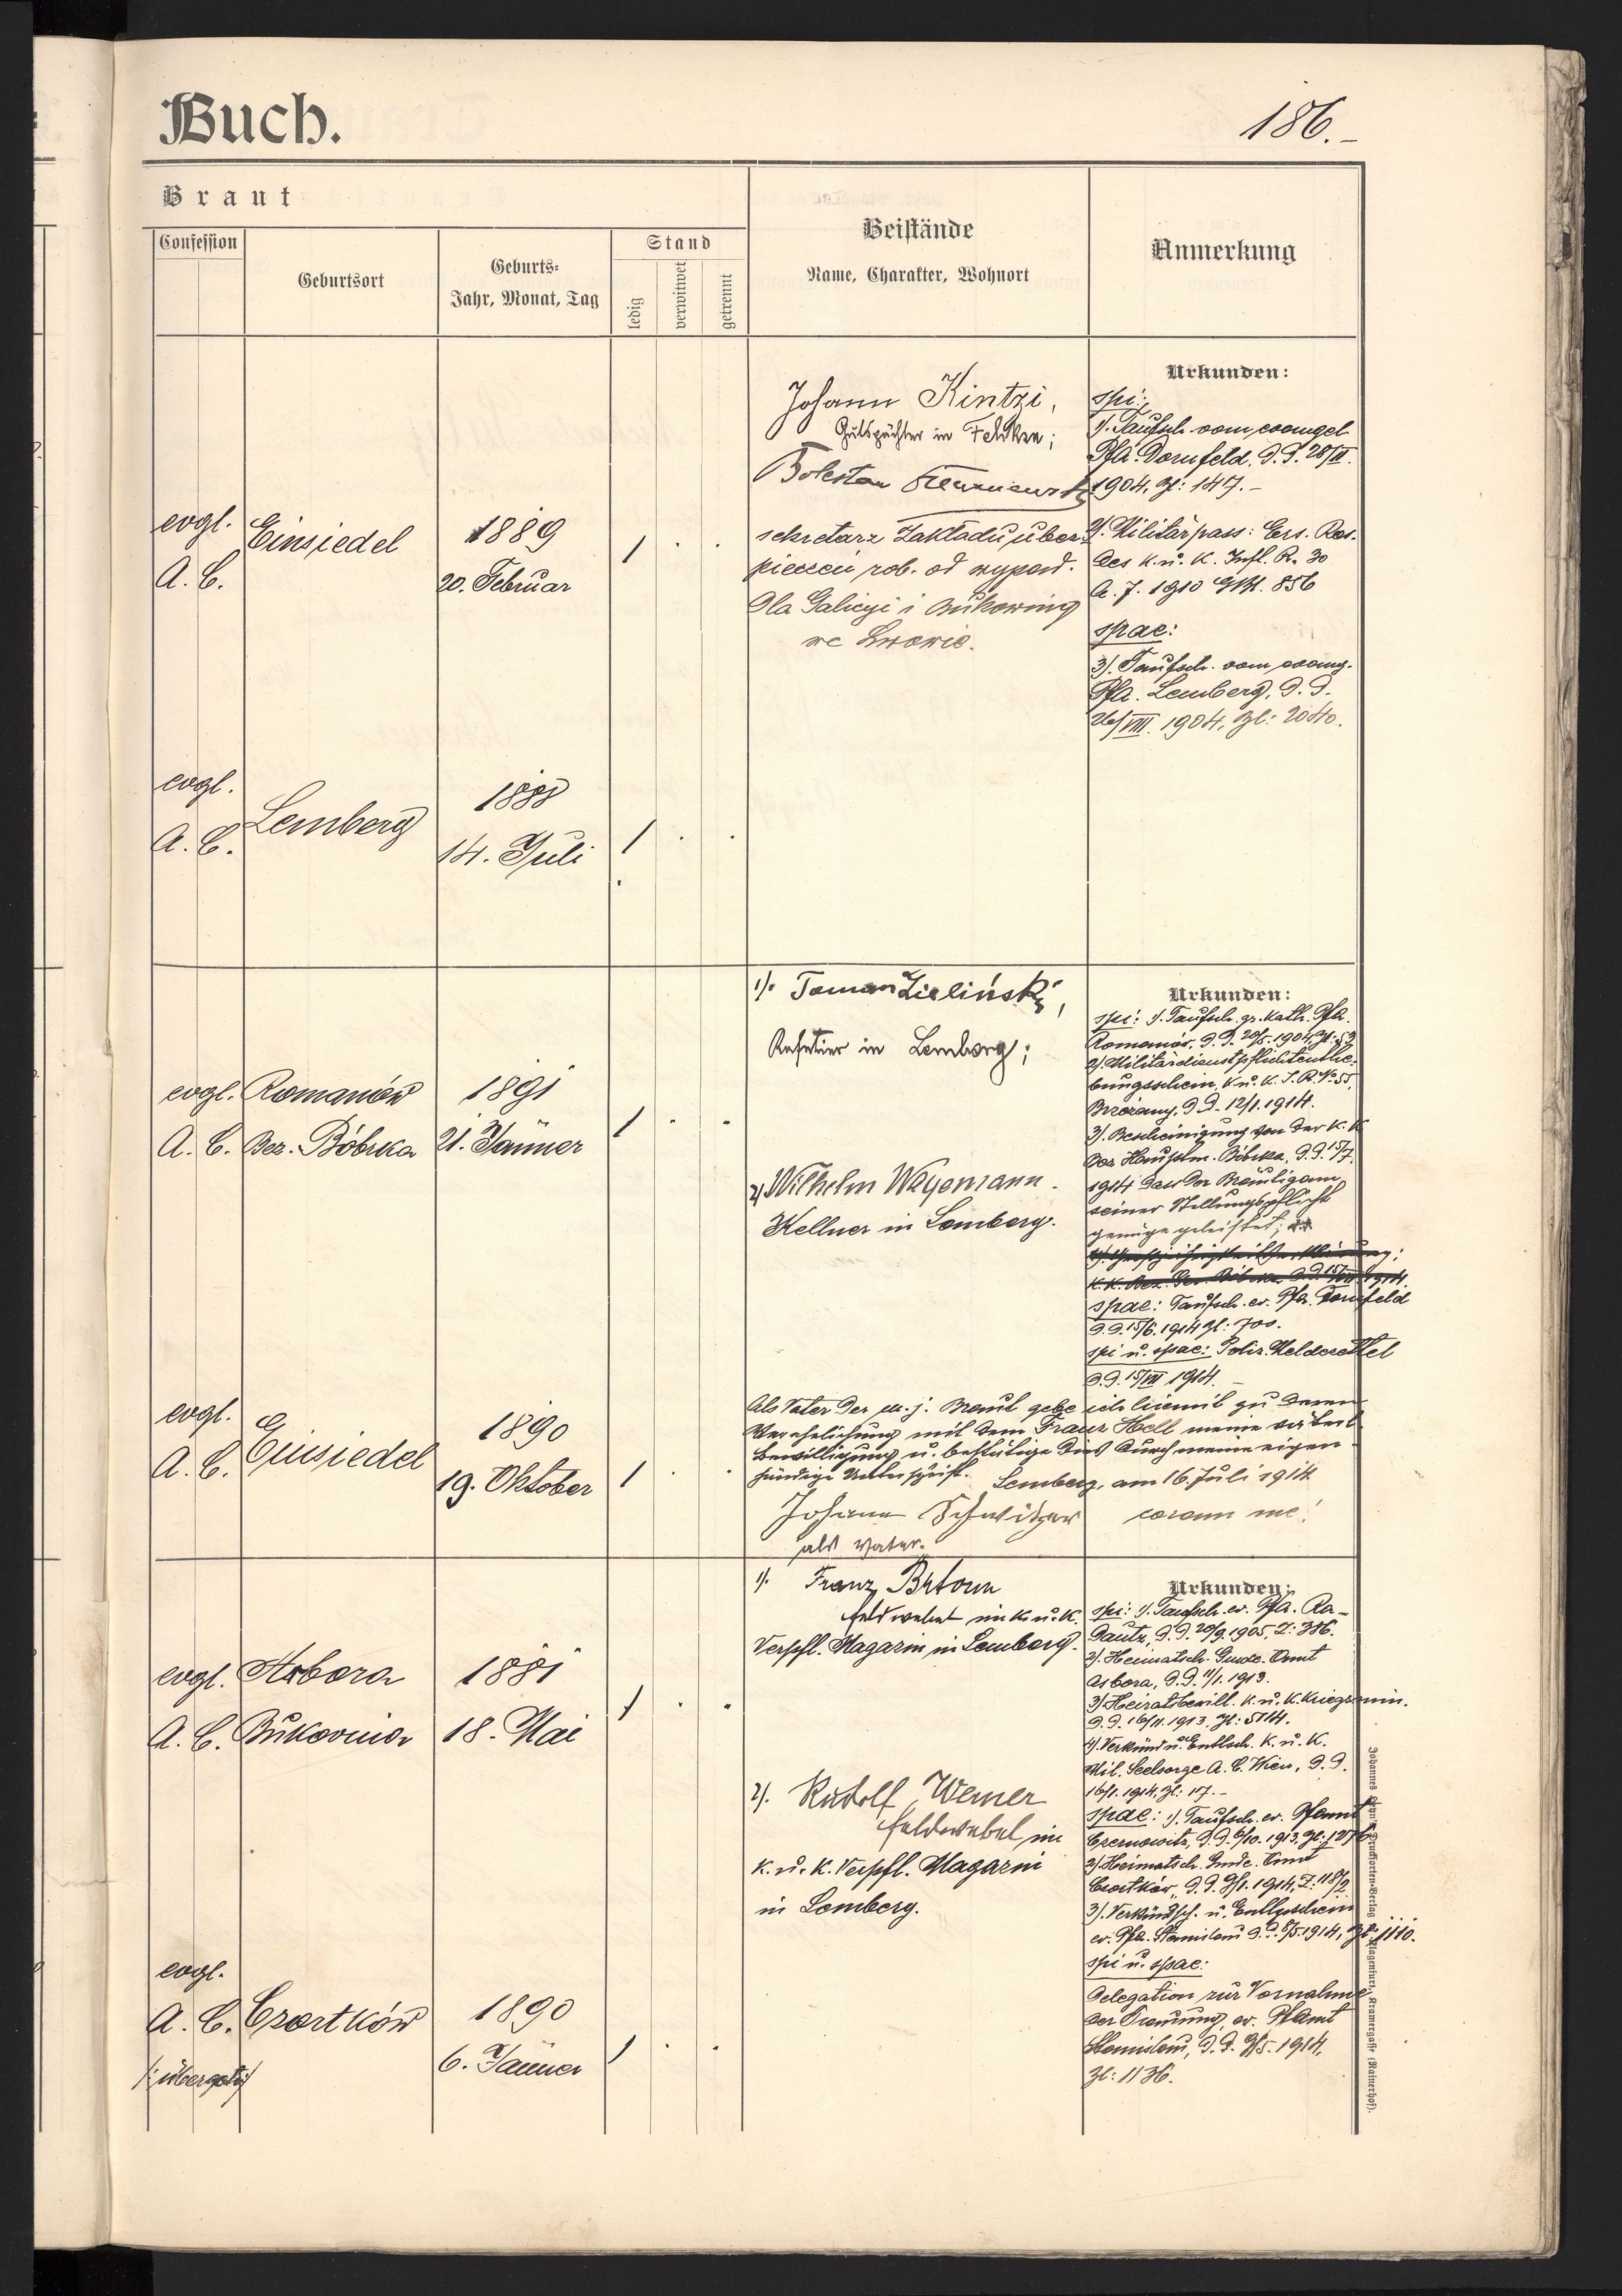 Buch.
186.-
Braut
Confession
Geburtsort
Geburts-
Jahr, Monat, Tag
Stand
ledig
verwitwet
getrennt
Beistände
Name, Charakter, Wohnort
Anmerkung
evgl.
A. C.
Einsiedel
1889
20. Februar
1 . .
Johann Kintzi,
Gutspächter in
Bolesław
sekretarz Zakładu ubez-
pieczeń rob. od wypad.
dla Galicyi i Bukowiny
we Lwowie.
Urkunden:
spi:
1/. Taufsch. vom evangel
Pfa. Dornfeld, d.d. 28/II.
1904, Zl: 147.-
2/. Militärpass: Ers. Res.
des k. u. k. Inft. R. 30
A. J. 1910 Gbl. 856
spae:
3/. Taufsch. vom evang.
Pfa. Lemberg, d.d.
26/VIII. 1904, Zl: 2040.
evgl.
A. C.
Lemberg
1888
14. Juli
1 . .
evgl.
A. C.
Romanów
Bez. Bóbrka
1891
21. Jänner
1 . .
1/. Toman Zieliński,
in Lemberg;
2/ Wilhelm Wagemann.
Kellner in Lemberg.
Urkunden:
spi: 1/. Taufsch. gr. kath. Pfa.
Romanów, d.d. 20/5. 1904, Zl: 59
2/. Militärdienstpflichtenthe-
bungsschein, k. u. k. I. R. No 55,
Brzeżany, d.d. 12/1. 1914.
3/. Bescheinigung von der k. k
Bez. Hauptm. Bóbrka, d.d. 15/7.
1914 dass der Bräutigam
seiner Stellungspflicht
genüge geleistet;
spae: Taufsch. ev. Pfa. Dornfeld
d.d. 15/6. 1914 Zl: 700.
spi u. spae: Poliz. Meldezettel
d.d. 15/VII 1914. -
evgl.
A. C.
Einsiedel
1890
19. Oktober
1 . .
Als Vater der m. j. Braut gebe ich hiemit zu deren
Verehelichung mit dem Franz Hell meine väterl.
Bewilligung u. bestätige dies durch meine eigen-
händige Unterschrift. Lemberg, am 16. Juli 1914
Johann Schweitzer coram me!
als Vater.
evgl.
A. C.
Bukovina
1881
18. Mai
1 . .
1/. Franz
Feldwebel im k. u. k.
Verpfl. Magazin in Lemberg.
2/. Rudolf Werner
Feldwebel im
k. u. k. Verpfl. Magazin
in Lemberg.
Urkunden:
spi: 1/. Taufsch. ev. Pfa. Ra-
dautz, d.d. 20/9. 1905, Z: 316.
2/. Heimatsch. Gmde. Amt
d.d. 11/1. 1913.
3/. Heiratsbewill. k. u. k. Kriegsmin.
d.d. 16/11. 1913, Zl: 5144.
4/. Verkünd u. Entlsch. k. u. k.
Mil. Seelsorge A. C. Wien, d.d.
16/1. 1914, Zl: 17.-
spae: 1/. Taufsch. ev. Pfamt
Czernowitz, d.d. 6/10. 1913, Zl: 1276
2/. Heimatsch. Gmde. Amt
Czortków, d.d. 9/1. 1914, Z: 118/2
3/. Verkündsch. u. Entlasschein
ev. Pfa. Stanislau d.d. 8/5. 1914, Zl: 1110.
spi u. spae:
Delegation zur Vornahme
der Trauung, ev. Pfamt
Stanislau, d.d. 9/5. 1914,
Zl: 1136.
evgl.
A. C.
/: übergetr. :/
Czortków
1890
6. Jänner
1 . .